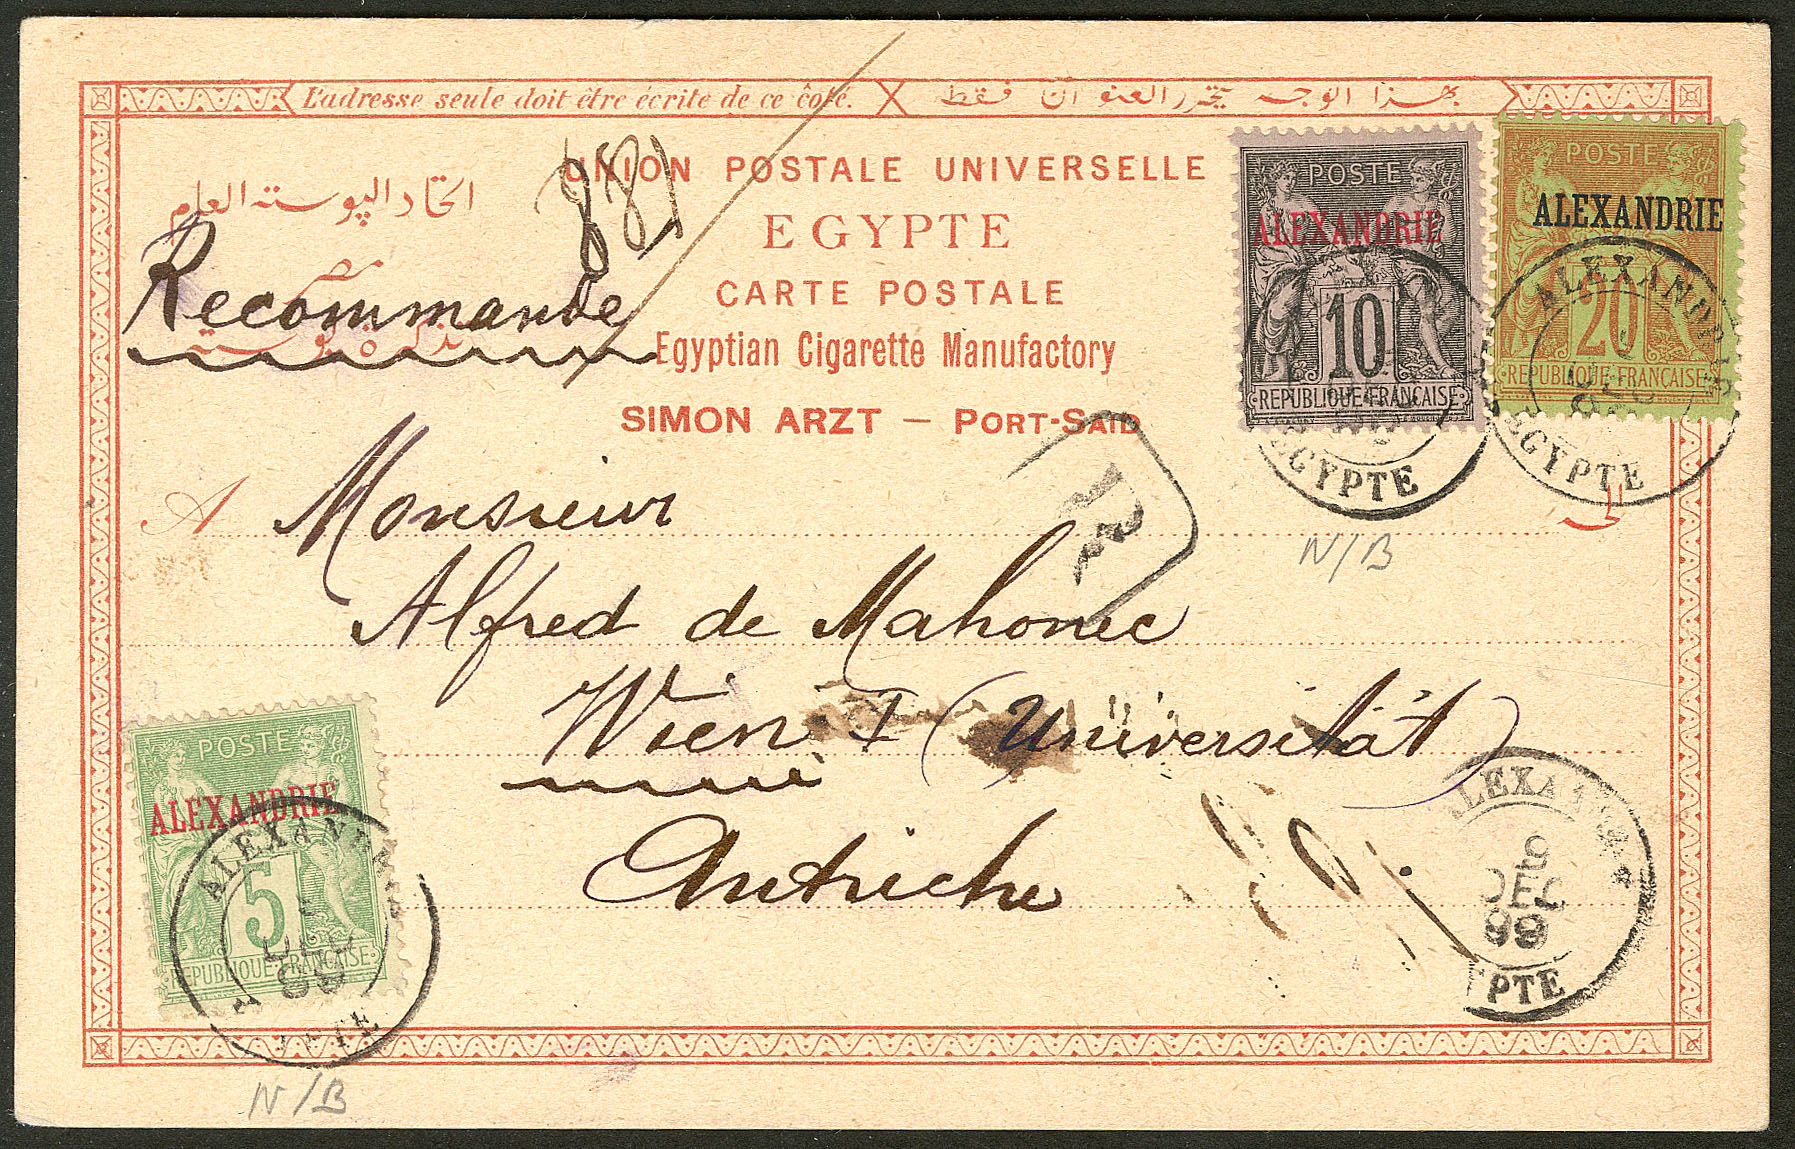 L'adresse seule doit être écrite de ce côté.
بهذا الوجه يحرر العنوان فقط
UNION POSTALE UNIVERSELLE
اتحاد البوسته العام
881
EGYPTE
مصر
Recommande
CARTE POSTALE
تذكرة بوسته
Egyptian Cigarette Manufactory
SIMON ARZT – PORT-SAID
POSTE
ALEXANDRIE
10
REPUBLIQUE FRANÇAISE
EGYPTE
POSTE
ALEXANDRIE
20
REPUBLIQUE FRANÇAISE
ALEXANDRIE
DEC
EGYPTE
R
N/B
A Monsieur
Alfred de Mahonec
Wien I (Universität)
Autriche
POSTE
ALEXANDRIE
5
REPUBLIQUE FRANÇAISE
ALEXANDRIE
DEC
99
N/B
ALEXANDRIE
9
DEC
99
EGYPTE